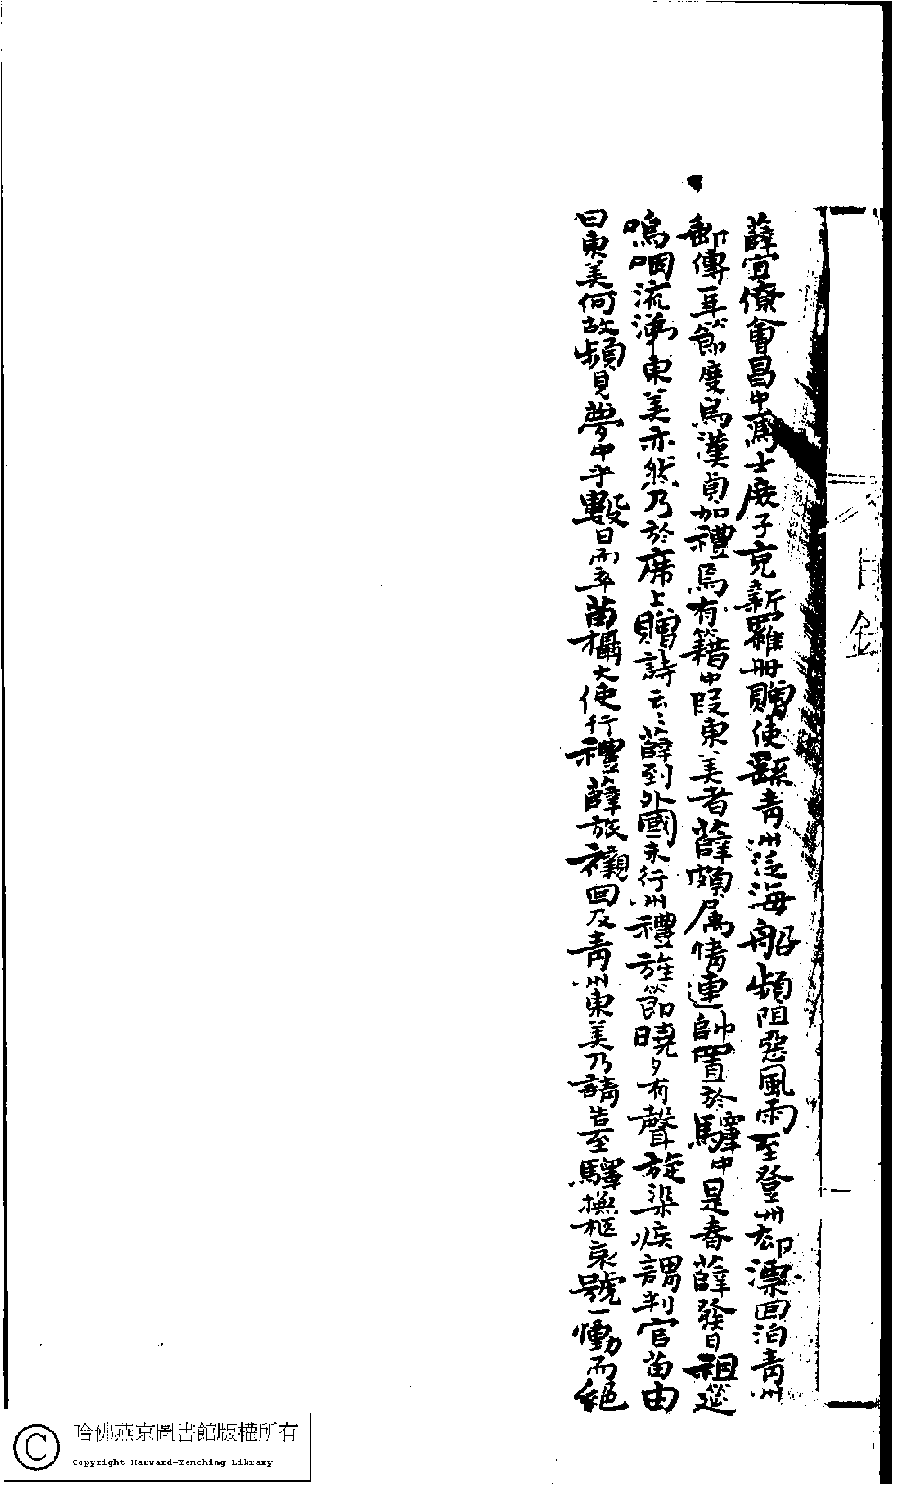 薛宜僚會昌中爲士庶子充新羅冊贈使繇青州泛海船頻阻惡風雨至登州却漂回泊青州
郵傳一年節度烏漢貞加禮焉有籍中段東美者薛頗属情連帥置於驛中是春薛發日祖筵
嗚咽流涕東美亦然乃於席上贈詩云云薛到外國未行州禮旌節曉夕有聲旋染疾謂判官苗由
曰東美何故頻見夢中乎數日而卒苗攝大使行禮薛旅櫬回及青州東美乃請告至驛撫柩哀號一慟而絶
哈佛燕京圖書館版權所有
Copyright Harvard-Yenching Library